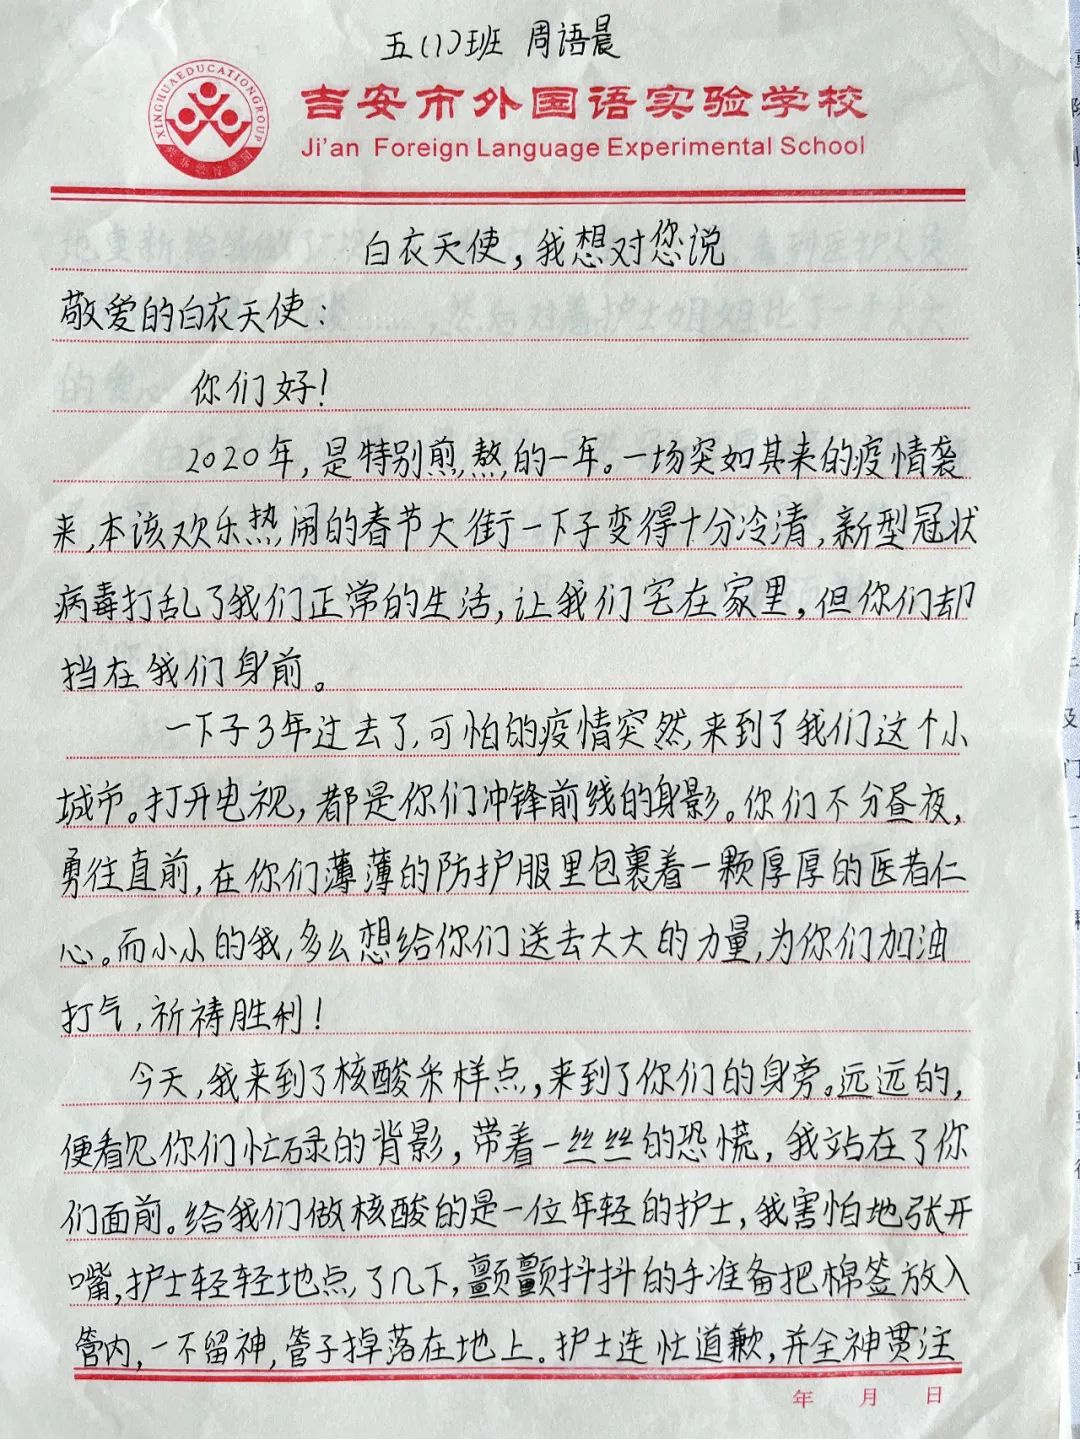 五(1)班 周语晨
XINGHUAEDUCATIONGROUP
吉安市外国语实验学校
Ji'an Foreign Language Experimental School
白衣天使，我想对您说
敬爱的白衣天使：
你们好！
2020年，是特别煎熬的一年。一场突如其来的疫情袭
来，本该欢乐热闹的春节大街一下子变得十分冷清，新型冠状
病毒打乱了我们正常的生活，让我们宅在家里，但你们却
挡在我们身前。
一下子3年过去了，可怕的疫情突然来到了我们这个小
城市。打开电视，都是你们冲锋前线的身影。你们不分昼夜，
勇往直前，在你们薄薄的防护服里包裹着一颗厚厚的医者仁
心。而小小的我，多么想给你们送去大大的力量，为你们加油
打气，祈祷胜利！
今天，我来到了核酸采样点，来到了你们的身旁。远远的，
便看见你们忙碌的背影，带着一丝丝的恐慌，我站在了你
们面前。给我们做核酸的是一位年轻的护士，我害怕地张开
嘴，护士轻轻地点了几下，颤颤抖抖的手准备把棉签放入
管内，一不留神，管子掉落在地上。护士连忙道歉，并全神贯注
年 月 日